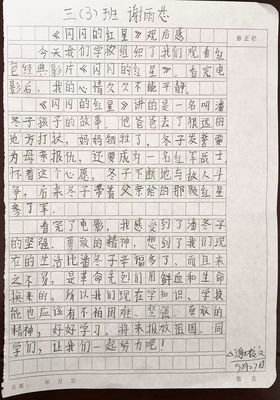 三（3）班 谢雨总
《闪闪的红星》观后感
今天我们学校组织了我们观看红
色经典影片《闪闪的红星》。看完电
影后，我的心情久久不能平静。
《闪闪的红星》讲的是一名叫潘
冬子孩子的故事，他爸爸去了很远的
地方打仗，妈妈牺牲了，冬子发誓要
为母亲报仇，还要成为一名红军战士
怀着这个心愿，冬子不断地与敌人斗
争，后来冬子带着父亲给的那颗红星
参了军。
看完了电影，我感受到了潘冬子
的坚强、勇敢的精神，想到了我们现
在的生活比潘冬子幸福多了，而且来
之不易，是革命先烈们用鲜血和生命
换来的。所以我们现在学知识、学技
能也应该有不怕困难、坚强、勇敢的
精神，好好学习，将来报效祖国，同
学们，让我们一起努力吧！
9月27日